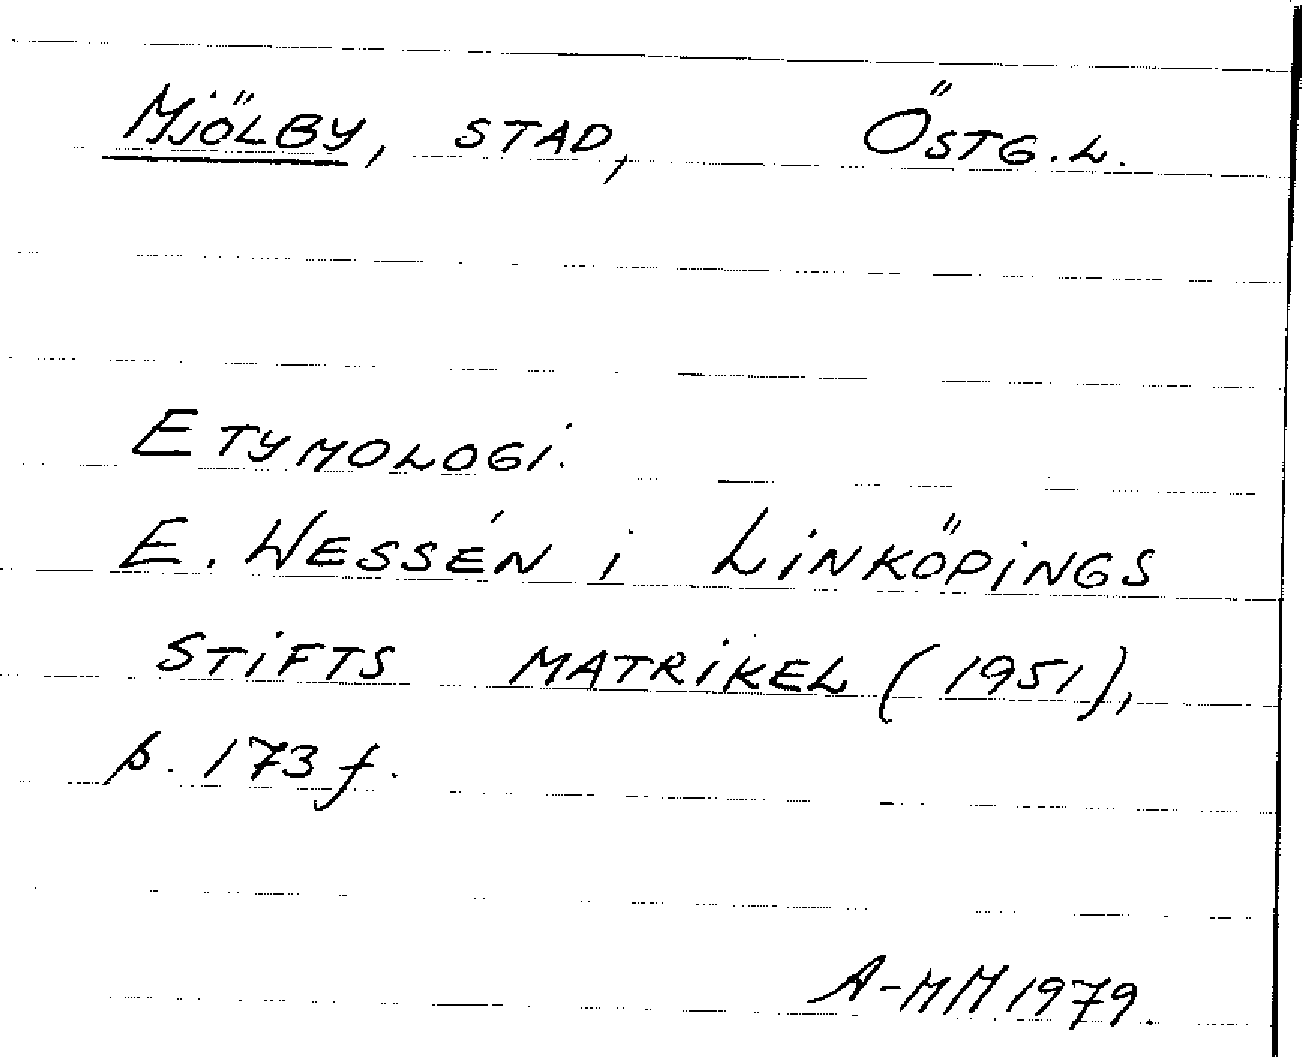 Mjölby, stad, Östg.l.
Etymologi.
E. Wessén i Linköpings
stifts matrikel (1951),
p. 173 f.
A-MM 1979.